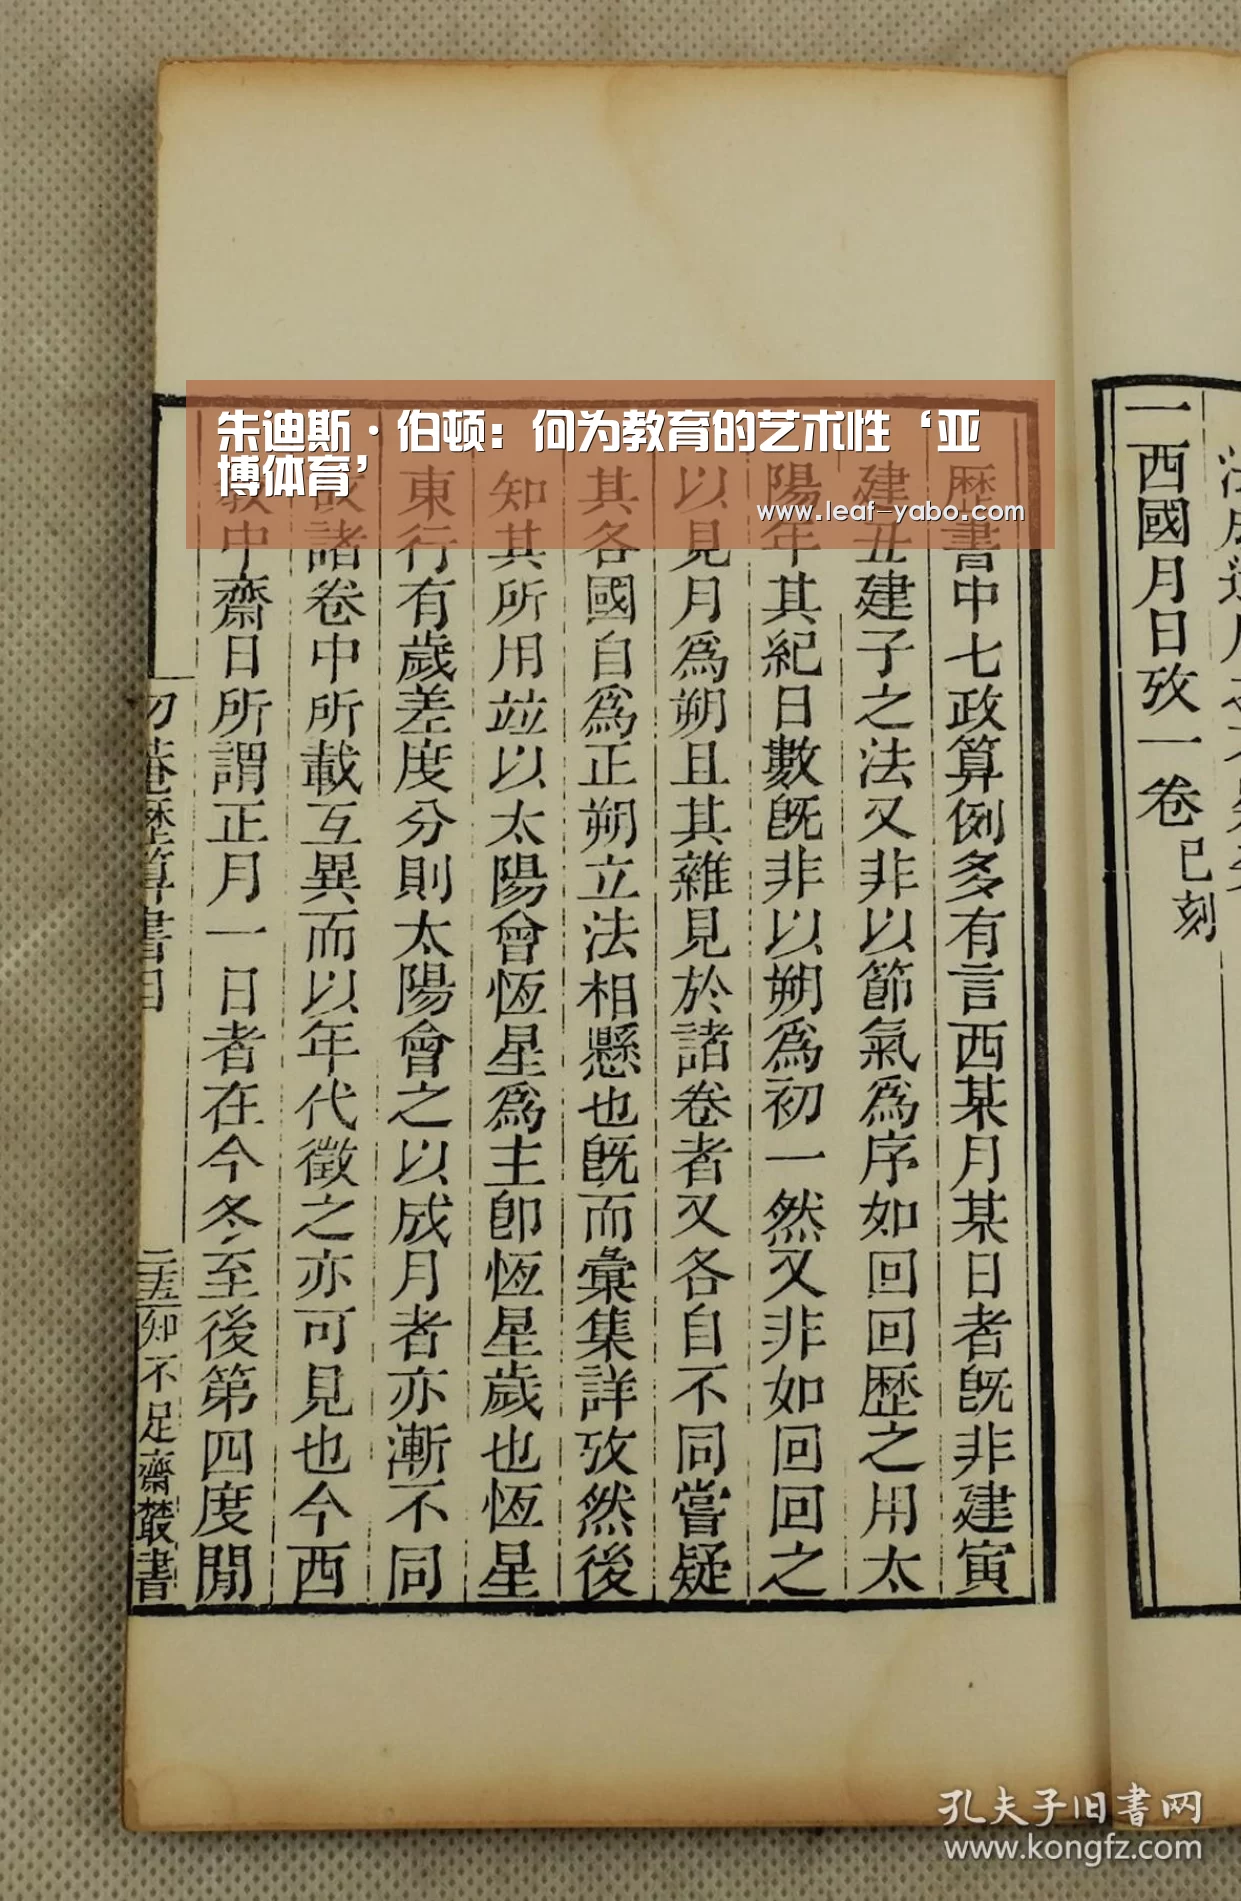 朱迪斯·伯顿：何为教育的艺术性‘亚
博体育’
www.leaf-yabo.com
一西國月日攷一卷已刻
歷書中七政算例多有言西某月某日者旣非建寅
建丑建子之法又非以節氣爲序如回回歷之用太
陽年其紀日數旣非以朔爲初一然又非如回回之
以見月爲朔且其雜見於諸卷者又各自不同嘗疑
其各國自爲正朔立法相懸也旣而彙集詳攷然後
知其所用竝以太陽會恆星爲主卽恆星歲也恆星
東行有歲差度分則太陽會之以成月者亦漸不同
故諸卷中所載互異而以年代徵之亦可見也今西
教中齋日所謂正月一日者在今冬至後第四度閒
勿菴歷算書目
二十五
知不足齋叢書
孔夫子旧書网
www.kongfz.com